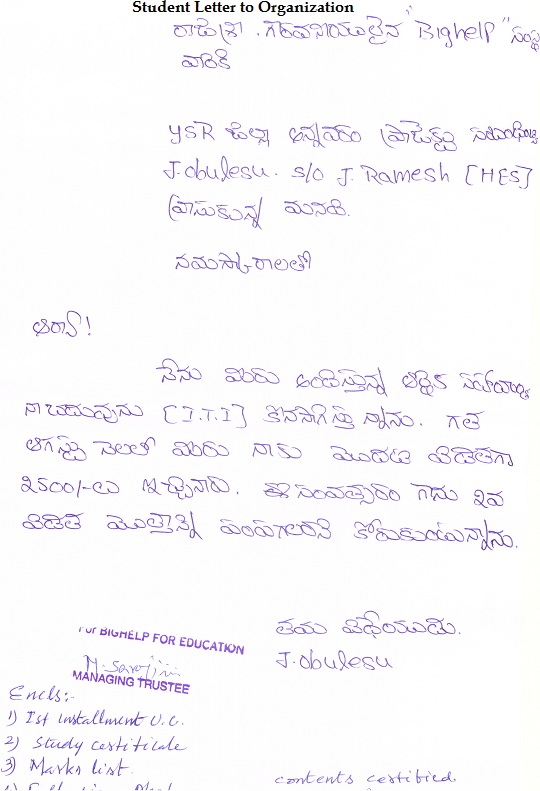 Student Letter to Organization
రాజశ్రీ. గౌరవనీయులైన "Bighelp" సంస్థ
వారికి
YSR జిల్లా అన్నవరం ప్రాజెక్టు
J. obulesu. s/o J. Ramesh [HES]
వ్రాసుకున్న మనవి.
నమస్కారాలతో
అయ్యా!
నేను మీరు అందిస్తున్న ఆర్థిక సహాయం
నా చదువును [I.T.I] కొనసాగిస్తున్నాను. గత
ఆగస్టు నెలలో మీరు నాకు మొదటి విడతగా
2500/-లు ఇచ్చినారు. ఈ సంవత్సరం గాను 2వ
విడత మొత్తాన్ని పంపగలరని కోరుకుంటున్నాను.
తమ విధేయుడు.
J. obulesu
For BIGHELP FOR EDUCATION
M. Sarojini
MANAGING TRUSTEE
Encls:-
1) Ist installment U.C.
2) Study certificate
3) Marks list.
contents certified